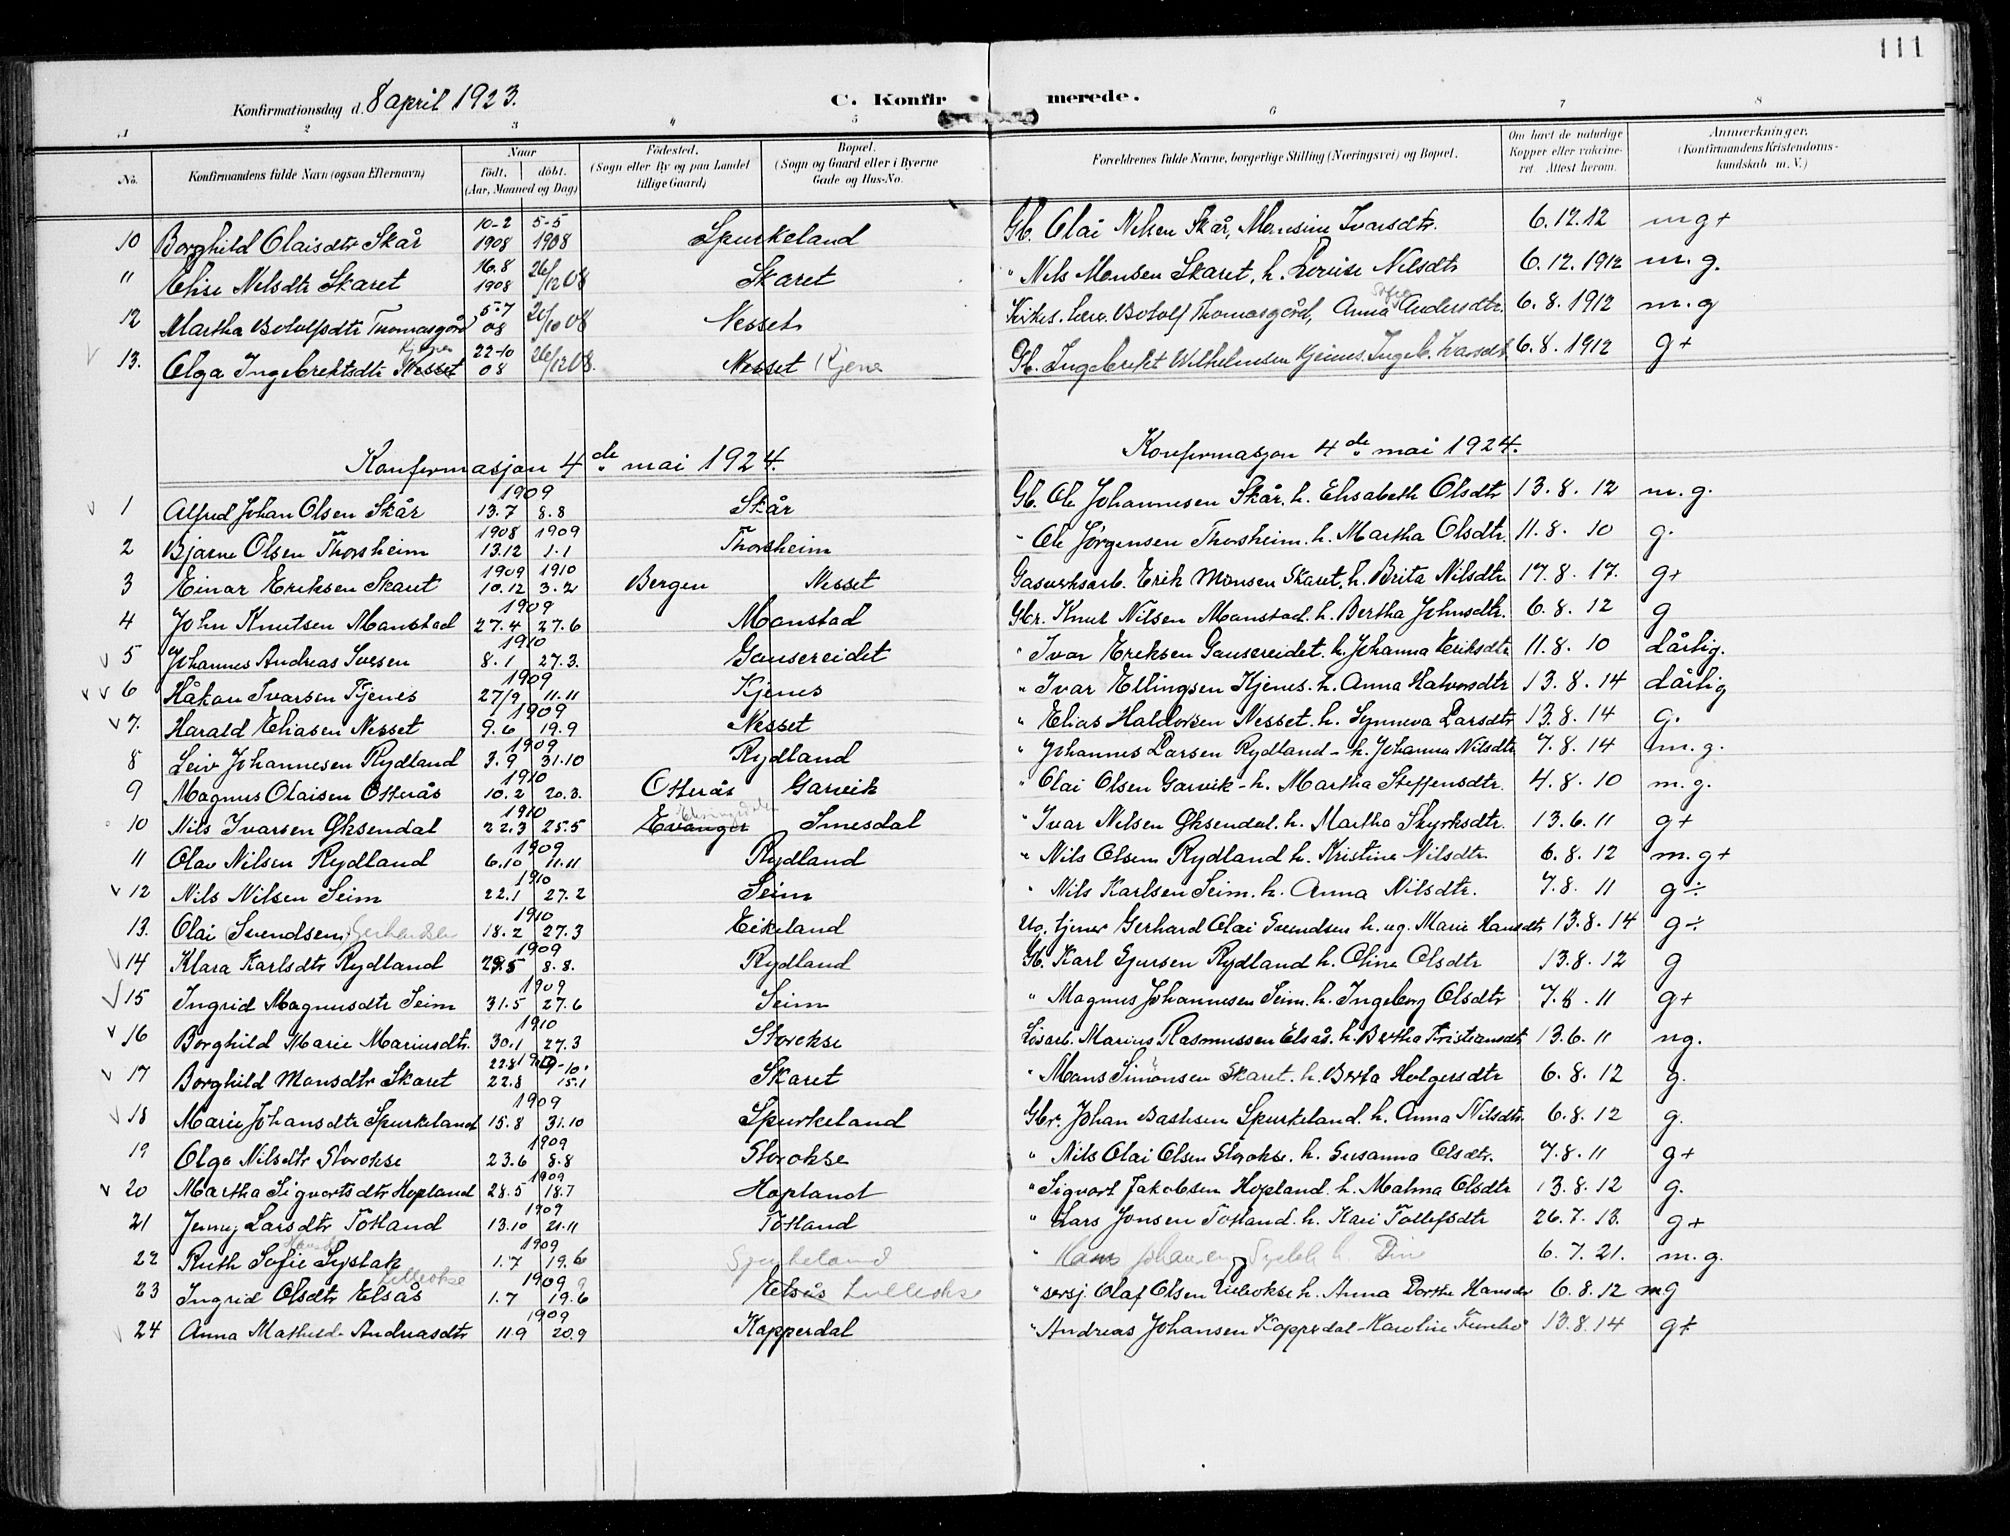 111
Konfirmationsdag d. 8 april 1923.
C. Konfirmerede.
1 2 3 4 5 6 7 8
No.
Konfirmandens fulde Navn (ogsaa Efternavn)
Naar
födt. döbt.
(Aar, Maaned og Dag)
Födested.
(Sogn eller By og paa Landet
tillige Gaard)
Bopæl.
(Sogn og Gaard eller i Byerne
Gade og Hus-No.
Forældrenes fulde Navne, borgerlige Stilling (Næringsvei) og Bopæl.
Om havt de naturlige
Kopper eller vakcine-
ret. Attest herom.
Anmærkninger.
(Konfirmandens Kristendoms-
kundskab m. V.)
10 Borghild Olaisdtr Skår 10-2 1908 5-5 1908 Spurkeland Gb. Olai Nelsen Skår, Monsine Ivarsdtr. 6.12.12 m g +
" Elise Nilsdtr Skaret 16.8 1908 26/12 08 Skaret " Nils Monsen Skaret, h. Lovise Nilsdtr 6.12.1912 m. g.
12 Martha Botolfsdtr Thomasgård 5-7 08 20/10 08 Nesset Kirkes. Botolf Thomasgård, Anna Sofie Andersdtr. 6.8.1912 m. g
13. Olga Ingebrektsdtr Nesset Kjenes 22-10 08 26/12 08. Nesset Kjenes Gb. Ingebrikt Wilhelmsen Kjenes, Ingeb. Ivarsdt 6.8.1912 g +
Konfirmasjon 4de mai 1924. Konfirmasjon 4de mai 1924.
1 Alfred Johan Olsen Skår 1909 13.7 8.8 Skår Gb. Ole Johannesen Skår. h. Elisabeth Olsdtr 13.8.12 m. g.
2 Bjarne Olsen Thorsheim 1908 1909 13.12 1.1 Thorsheim " Ole Jørgensen Thorsheim. h. Martha Olsdtr. 11.8.10 g.
3 Einar Eriksen Skaret 1909 1910 10.12 3.2 Bergen Nesset Gasverksarb. Erik Monsen Skaret. h. Brita Nilsdtr 17.8.17. g+
4 John Knutsen Monstad 1909 27.4 27.6 Monstad Gbr. Knut Nilsen Monstad. h. Bertha Johnsdtr. 6.8.12 g
5 Johannes Andreas Ivesen 1910 8.1 27.3. Gausereidet " Ivar Eriksen Gausereidet. h. Johanna Eriksdtr 11.8.10 dårlig.
6 Håkon Ivarsen Kjenes 1909 27/9 11.11 Kjenes " Ivar Ellingsen Kjenes. h. Anna Halvorsdtr 13.8.14 dårlig
7. Harald Eliasen Nesset 1909 9.6 19.9 Nesset " Elias Haldorsen Nesset. h. Synneva Larsdtr 13.8.14 g.
8 Leiv Johannesen Rydland 1909 3.9 31.10 Rydland " Johannes Larsen Rydland - h. Johanna Nilsdtr 7.8.14 m. g.
9 Magnus Olaisen Otterås 1910 10.2 20.3. Otterås Garvik " Olai Olsen Garvik - h. Martha Steffensdtr. 4.8.10 m. g.
10 Nils Ivarsen Øksendal 1910 22.3 25.5 Evanger Smesdal " Ivar Nilsen Øksendal. h. Martha Styrksdtr. 13.6.11 g+
11 Olav Nilsen Rydland 1909 6.10 11.11 Rydland " Nils Olsen Rydland h. Kristine Nilsdtr. 6.8.12 m. g+
12 Nils Nilsen Seim 1910 22.1 27.2 Seim " Nils Karlsen Seim. h. Anna Nilsdtr. 7.8.11 g÷
13. Olai (Svendsen) Gerhardsen 1910 18.2 27.3 Eikeland Ug. tjener Gerhard Olai Svendsen h. ug. Marie Hansdtr 13.8.14 g÷
14 Klara Karlsdtr Rydland 1909 29.5 8.8. Rydland Gb. Karl Gjursen Rydland h. Oline Olsdtr 13.8.12 g
15 Ingrid Magnusdtr Seim 1909 31.5 27.6 Seim " Magnus Johannesen Seim. h. Ingeborg Olsdtr 7.8.11 g+
16 Borghild Marie Mariusdtr. 1910 30.1 27.3 Storokse Løsarb. Marius Rasmussen Elsås. h. Bertha Kristiansdt 13.6.11 ng.
17 Borghild Monsdtr Skaret 22.8 15.1 Skaret " Mons Simonsen Skaret. h. Berta Holgersdtr 6.8.12 g.
18 Marie Johansdtr Spurkeland 1909 15.8 31.10 Spurkeland Gbr. Johan Bastesen Spurkeland. h. Anna Nilsdtr. 6.8.12 g.
19 Olga Nilsdtr Storokse 1909 23.6 8.8 Storokse " Nils Olai Olsen Storokse. h. Susanna Olsdtr. 7.8.11 g+
20 Martha Sigvartsdtr Hopland 1909 28.5 18.7 Hopland " Sigvart Jakobsen Hopland. h. Malma Olsdtr 13.8.12 g.
21 Jenny Larsdtr Totland 1909 13.10 21.11 Totland " Lars Jonsen Totland. h. Kari Tollefsdtr 26.7.13. g+
22 Ruth Sofie Systak 1909 1.7 19.6 Spurkeland " Hans Johan h. 6.7.21. m. g.
23 Ingrid Olsdtr Elsås Lilleokse 1909 1.7 19.6 Elsås Lilleokse " sersj. Olaf Olsen Lilleokse h. Anna Dorthe Hansdr 6.8.12 mg
24 Anna Mathilde Andreasdtr 1909 11.9 20.9 Kopperdal " Andreas Johansen Kopperdal - Karoline 13.8.14 g+